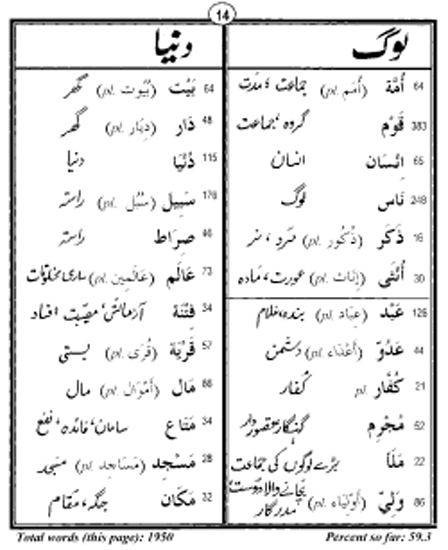 14
لوگ
64 أُمَّة (pl. أُمَم) جماعت، مدت
383 قَوْم گروہ، جماعت
65 اِنْسَان انسان
248 نَاس لوگ
16 ذَكَر (pl. ذُكُور) مرد، نر
30 أُنْثَى (pl. إِنَاث) عورت، مادہ
126 عَبْد (pl. عِبَاد) بندہ، غلام
44 عَدُوّ (pl. أَعْدَاء) دشمن
21 كُفَّار کفار
52 مُجْرِم گنہگار، قصوردار
22 مَلَأ بڑے لوگوں کی جماعت
86 وَلِيّ (pl. أَوْلِيَاء) بچانے والا، دوست، مددگار
دنیا
64 بَيْت (pl. بُيُوت) گھر
48 دَار (pl. دِيَار) گھر
115 دُنْيَا دنیا
176 سَبِيل (pl. سُبُل) راستہ
46 صِرَاط راستہ
73 عَالَم (pl. عَالَمِين) ساری مخلوقات
34 فِتْنَة آزمائش، مصیبت، فساد
57 قَرْيَة (pl. قُرَى) بستی
86 مَال (pl. أَمْوَال) مال
34 مَتَاع سامان، فائدہ، نفع
28 مَسْجِد (pl. مَسَاجِد) مسجد
32 مَكَان جگہ، مقام
Total words (this page): 1950
Percent so far: 59.3